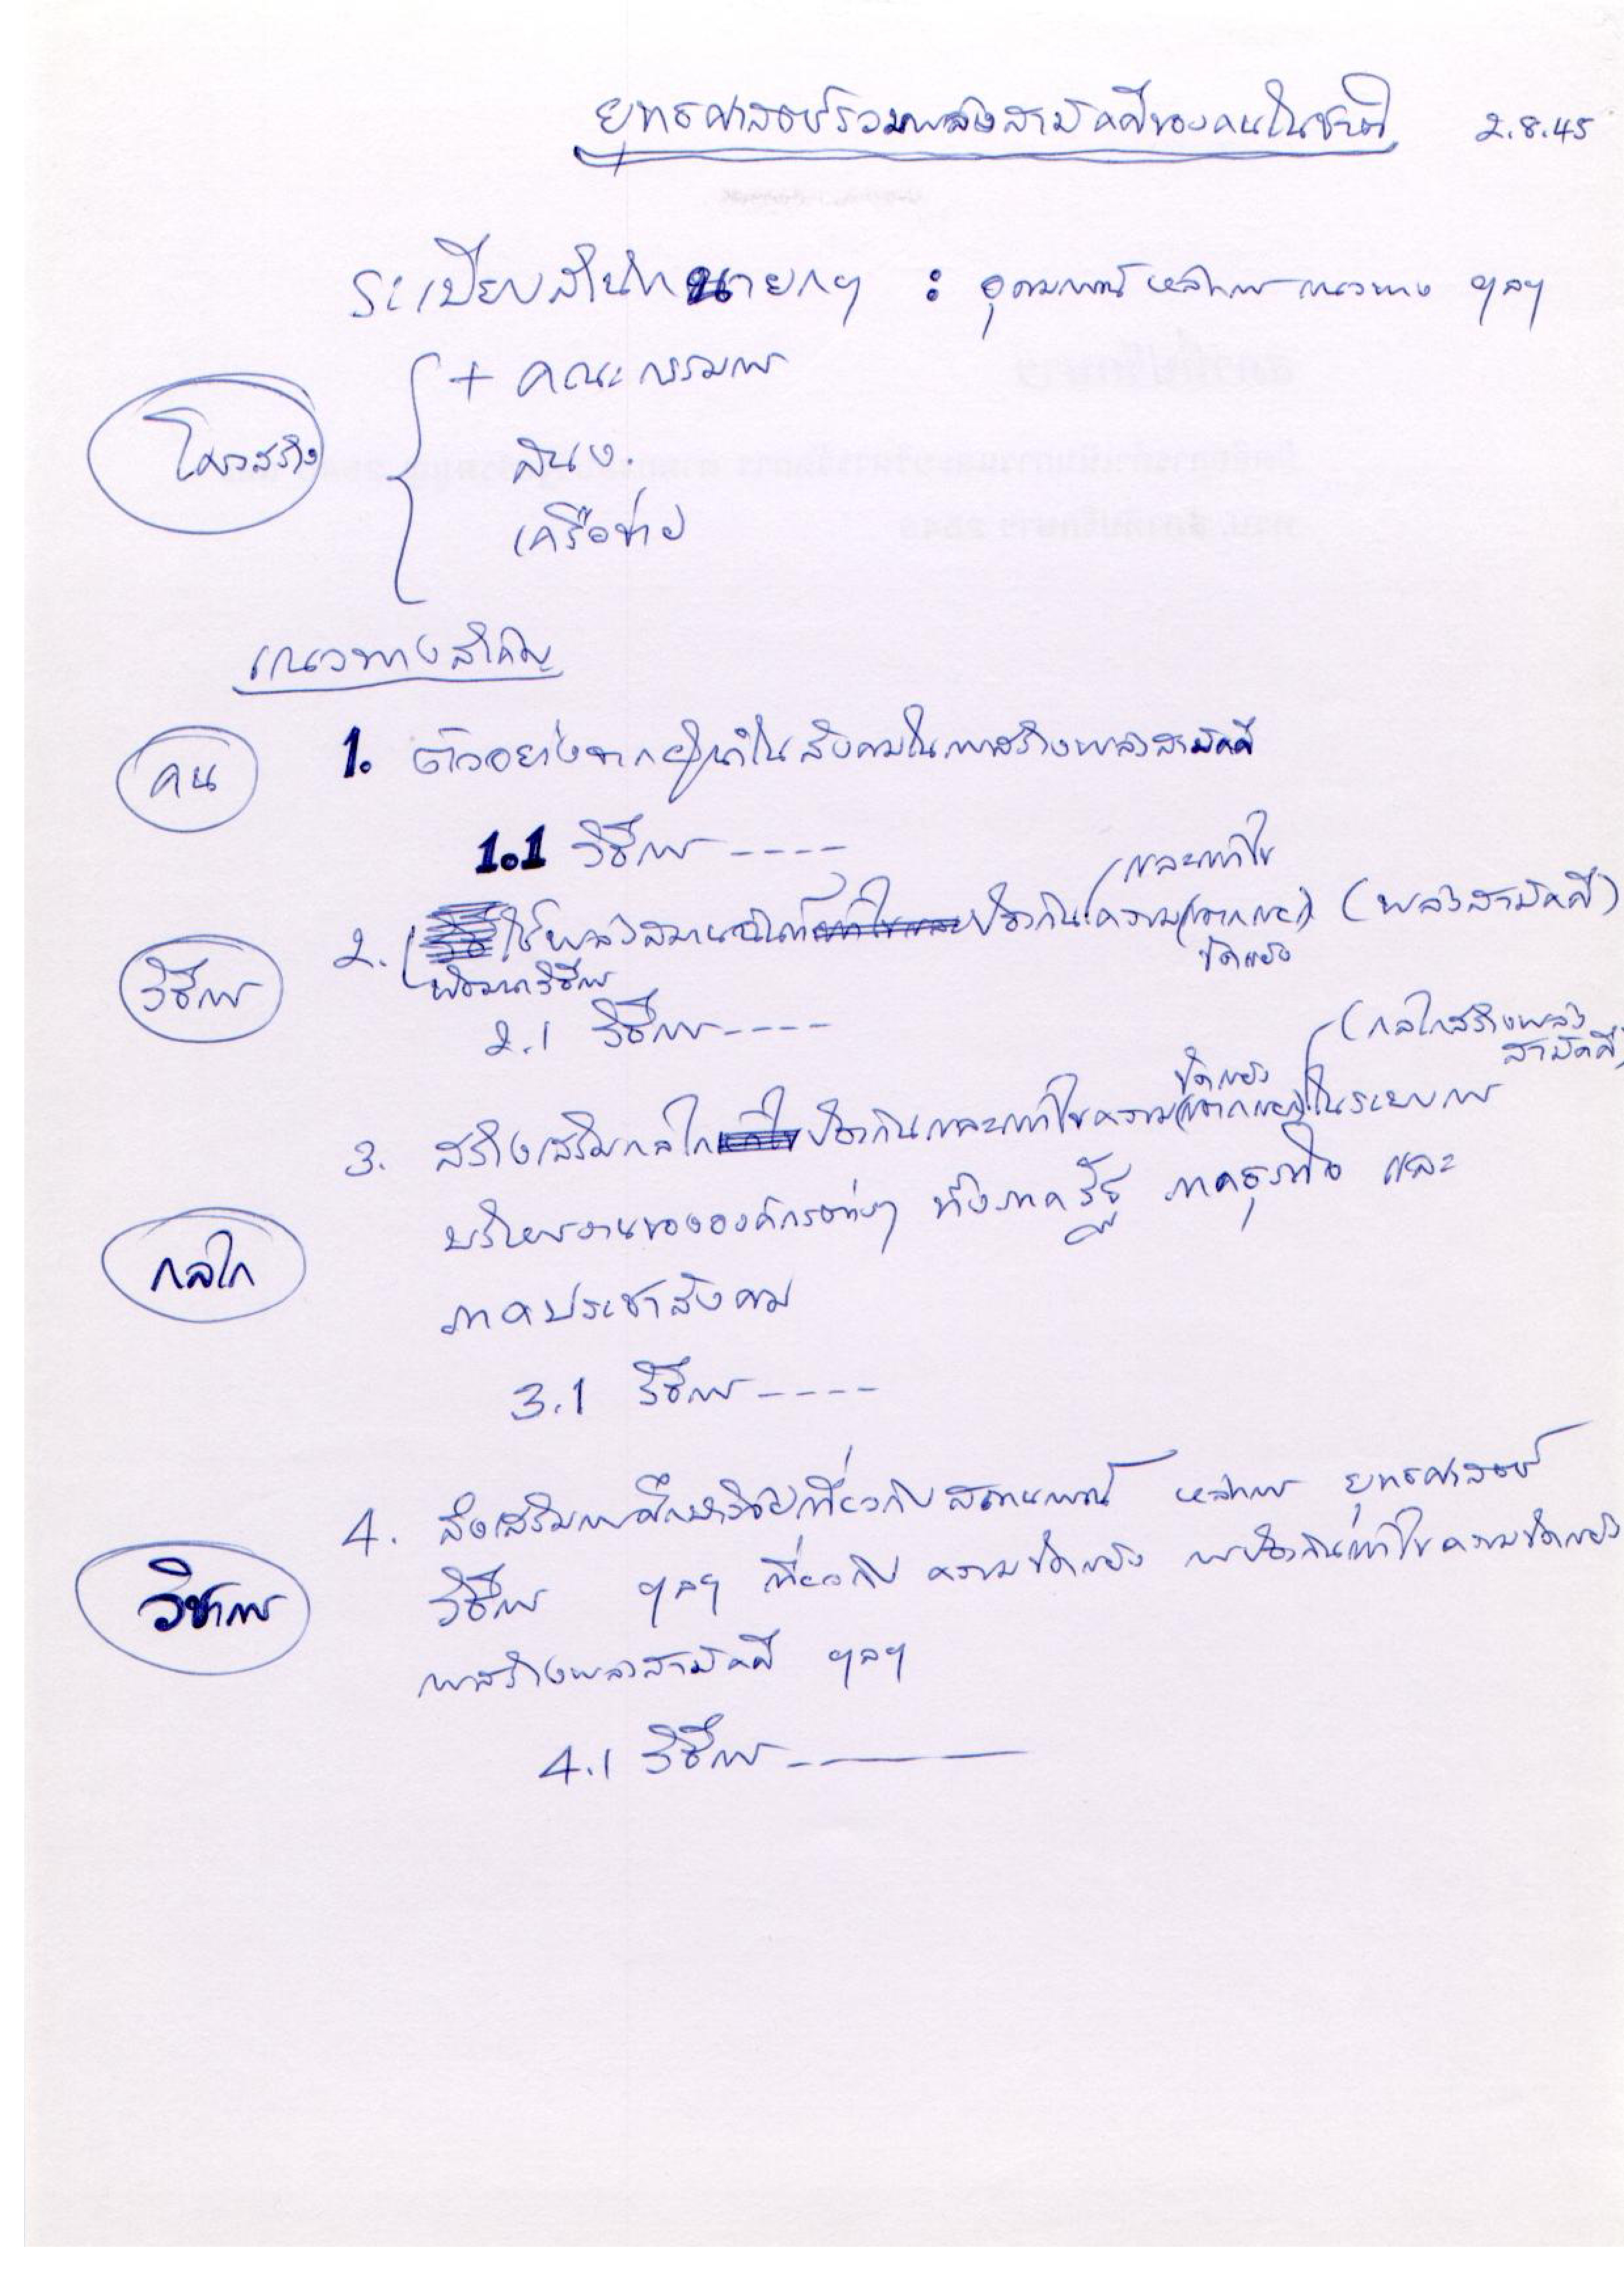 ยุทธศาสตร์รวมพลังสามัคคีของคนในชาติ 2.8.45
ระเบียบสำนักนายกฯ : อุดมการณ์ หลักการ แนวทาง ฯลฯ
โครงสร้าง
+ คณะกรรมการ
สนง.
เครือข่าย
แนวทางสำคัญ
คน
1. ตัวอย่างจากผู้นำในสังคมในการสร้างพลังสามัคคี
1.1 วิธีการ ----
และแก้ไข
วิธีการ
2. ใช้พลังสมานฉันท์ ป้องกัน ความ (แตกแยก) (พลังสามัคคี)
พัฒนาวิธีการ
ขัดแย้ง
2.1 วิธีการ ----
(กลไกสร้างพลัง
สามัคคี)
ขัดแย้ง
3. สร้างเสริมกลไก ป้องกันและแก้ไขความ (แตกแยก) ในระบบการ
กลไก
บริหารงานขององค์กรต่างๆ ทั้งภาครัฐ ภาคธุรกิจ และ
ภาคประชาสังคม
3.1 วิธีการ ----
4. ส่งเสริมการศึกษาวิจัยเกี่ยวกับสถานการณ์ หลักการ ยุทธศาสตร์
วิชาการ
วิธีการ ฯลฯ เกี่ยวกับ ความขัดแย้ง การป้องกันแก้ไขความขัดแย้ง
การสร้างพลังสามัคคี ฯลฯ
4.1 วิธีการ ----